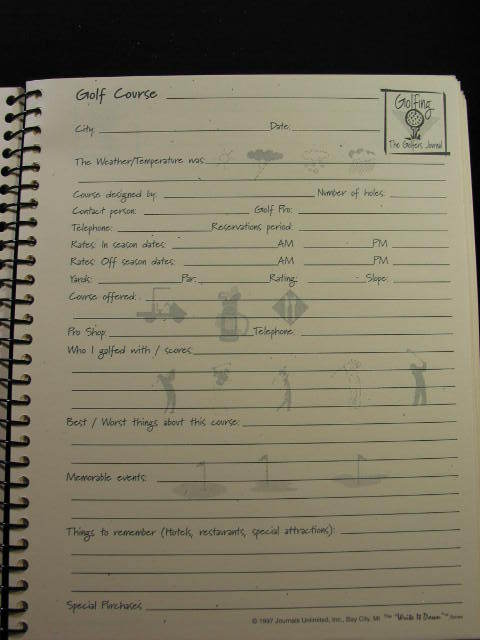 Golf Course
Golfing
The Golfers Journal
City: Date:
The Weather/Temperature was:
Course designed by: Number of holes:
Contact person: Golf Pro:
Telephone: Reservations period:
Rates: In season dates: AM PM
Rates: Off season dates: AM PM
Yards: Par: Rating: Slope:
Course offered:
Pro Shop: Telephone:
Who I golfed with / scores:
Best / Worst things about this course:
Memorable events:
Things to remember (Hotels, restaurants, special attractions):
Special Purchases
© 1997 Journals Unlimited, Inc., Bay City, MI The "Write It Down" Series